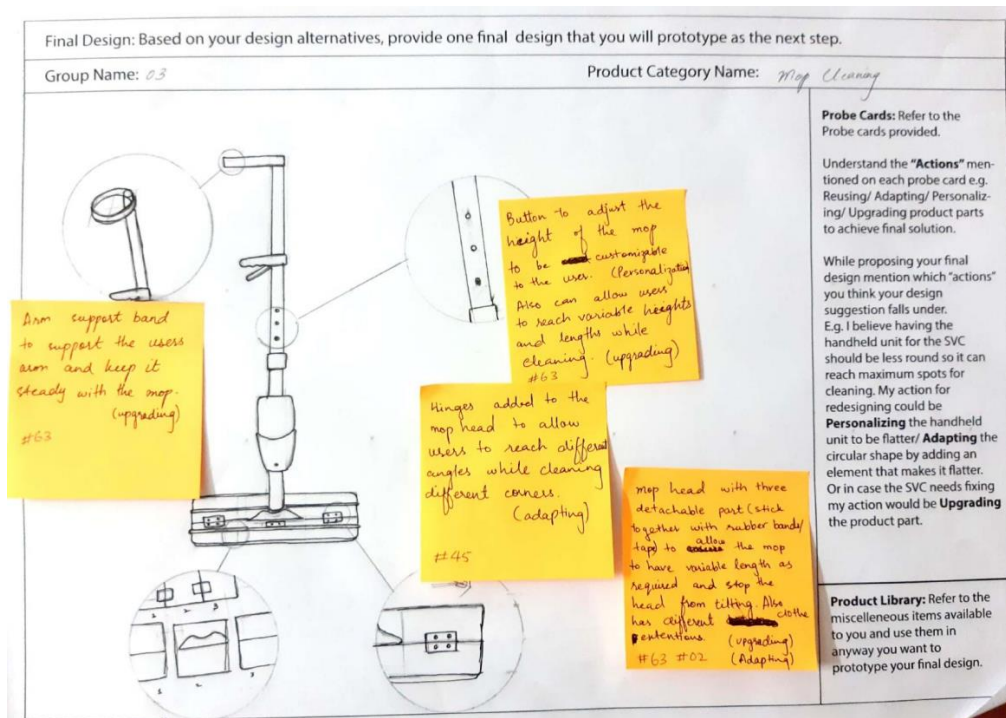 Final Design: Based on your design alternatives, provide one final design that you will prototype as the next step.
Group Name: 03
Product Category Name: Mop Cleaning
Arm support band
to support the users
arm and keep it
steady with the mop.
(upgrading)
#63
Button to adjust the
height of the mop
to be customizable
to the user. (Personalization)
Also can allow users
to reach variable heights
and lengths while
cleaning. (upgrading)
#63
Hinges added to the
mop head to allow
users to reach different
angles while cleaning
different corners.
(adapting)
#45
mop head with three
detachable part (stick
together with rubber bands/
tape) to allow the mop
to have variable length as
required and stop the
head from tilting. Also
has different clothe
extentions. (upgrading)
#63 #02 (Adapting)
1 2 3
1 2 3
Probe Cards: Refer to the
Probe cards provided.
Understand the "Actions" men-
tioned on each probe card e.g.
Reusing/ Adapting/ Personaliz-
ing/ Upgrading product parts
to achieve final solution.
While proposing your final
design mention which "actions"
you think your design
suggestion falls under.
E.g. I believe having the
handheld unit for the SVC
should be less round so it can
reach maximum spots for
cleaning. My action for
redesigning could be
Personalizing the handheld
unit to be flatter/ Adapting the
circular shape by adding an
element that makes it flatter.
Or in case the SVC needs fixing
my action would be Upgrading
the product part.
Product Library: Refer to the
miscelleneous items available
to you and use them in
anyway you want to
prototype your final design.